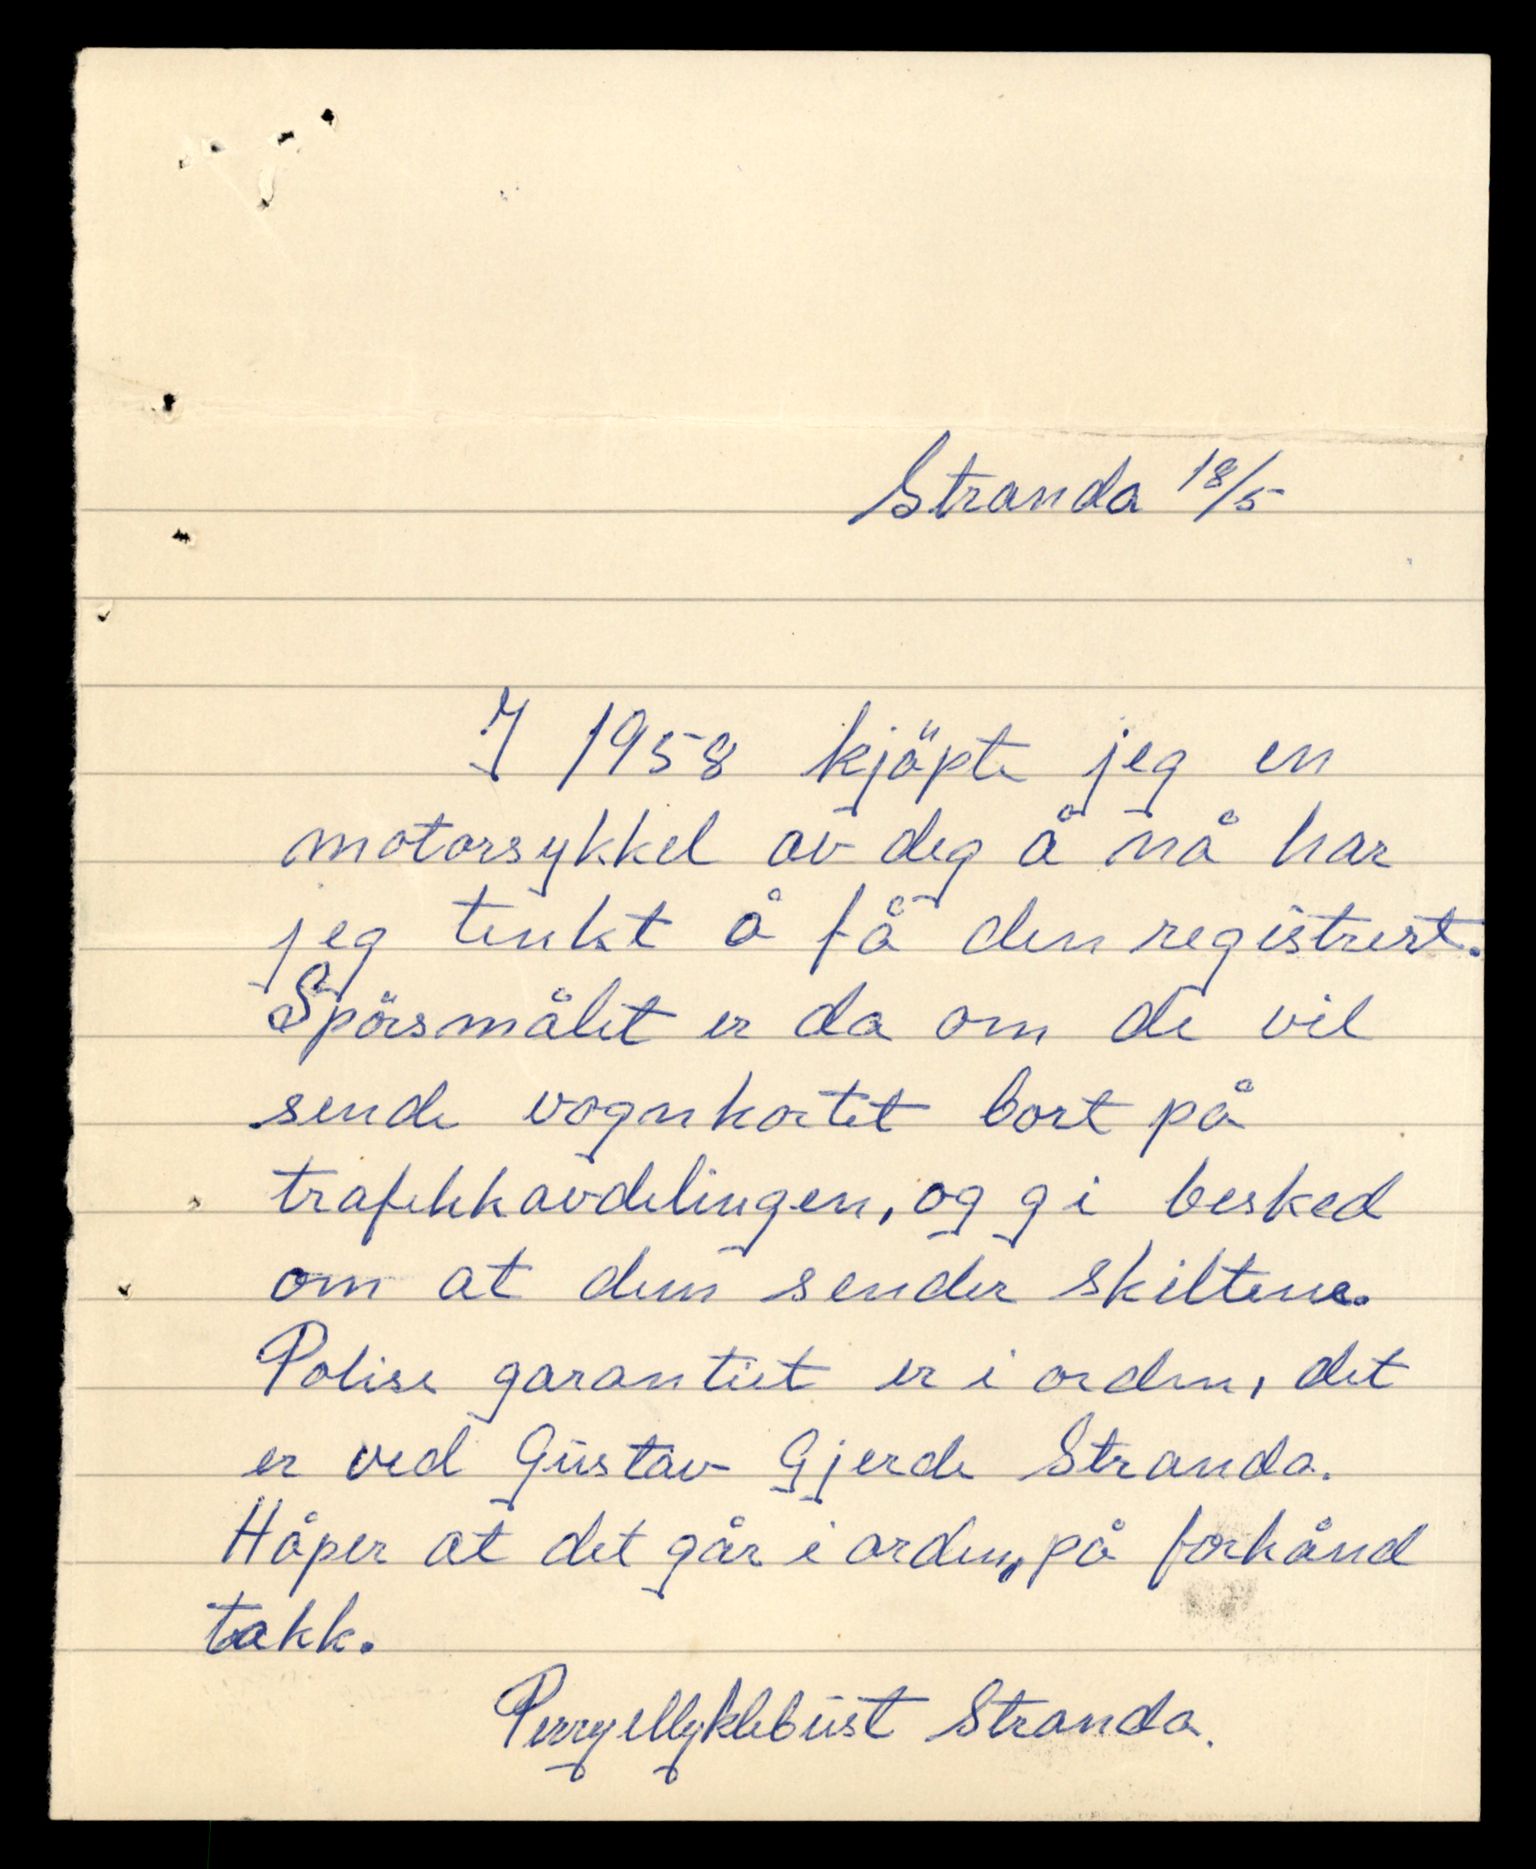 Stranda 18/5
I 1958 kjöpte jeg en
motorsykkel av deg å nå har
jeg tenkt å få den registrert.
Spörsmålet er da om de vil
sende vognkortet bort på
trafikkavdelingen, og gi besked
om at dem sender skiltene.
Polise garantiet er i orden, det
er ved Gustav Gjerde Stranda.
Håper at det går i orden, på forhånd
takk.
Perry Myklebust Stranda.